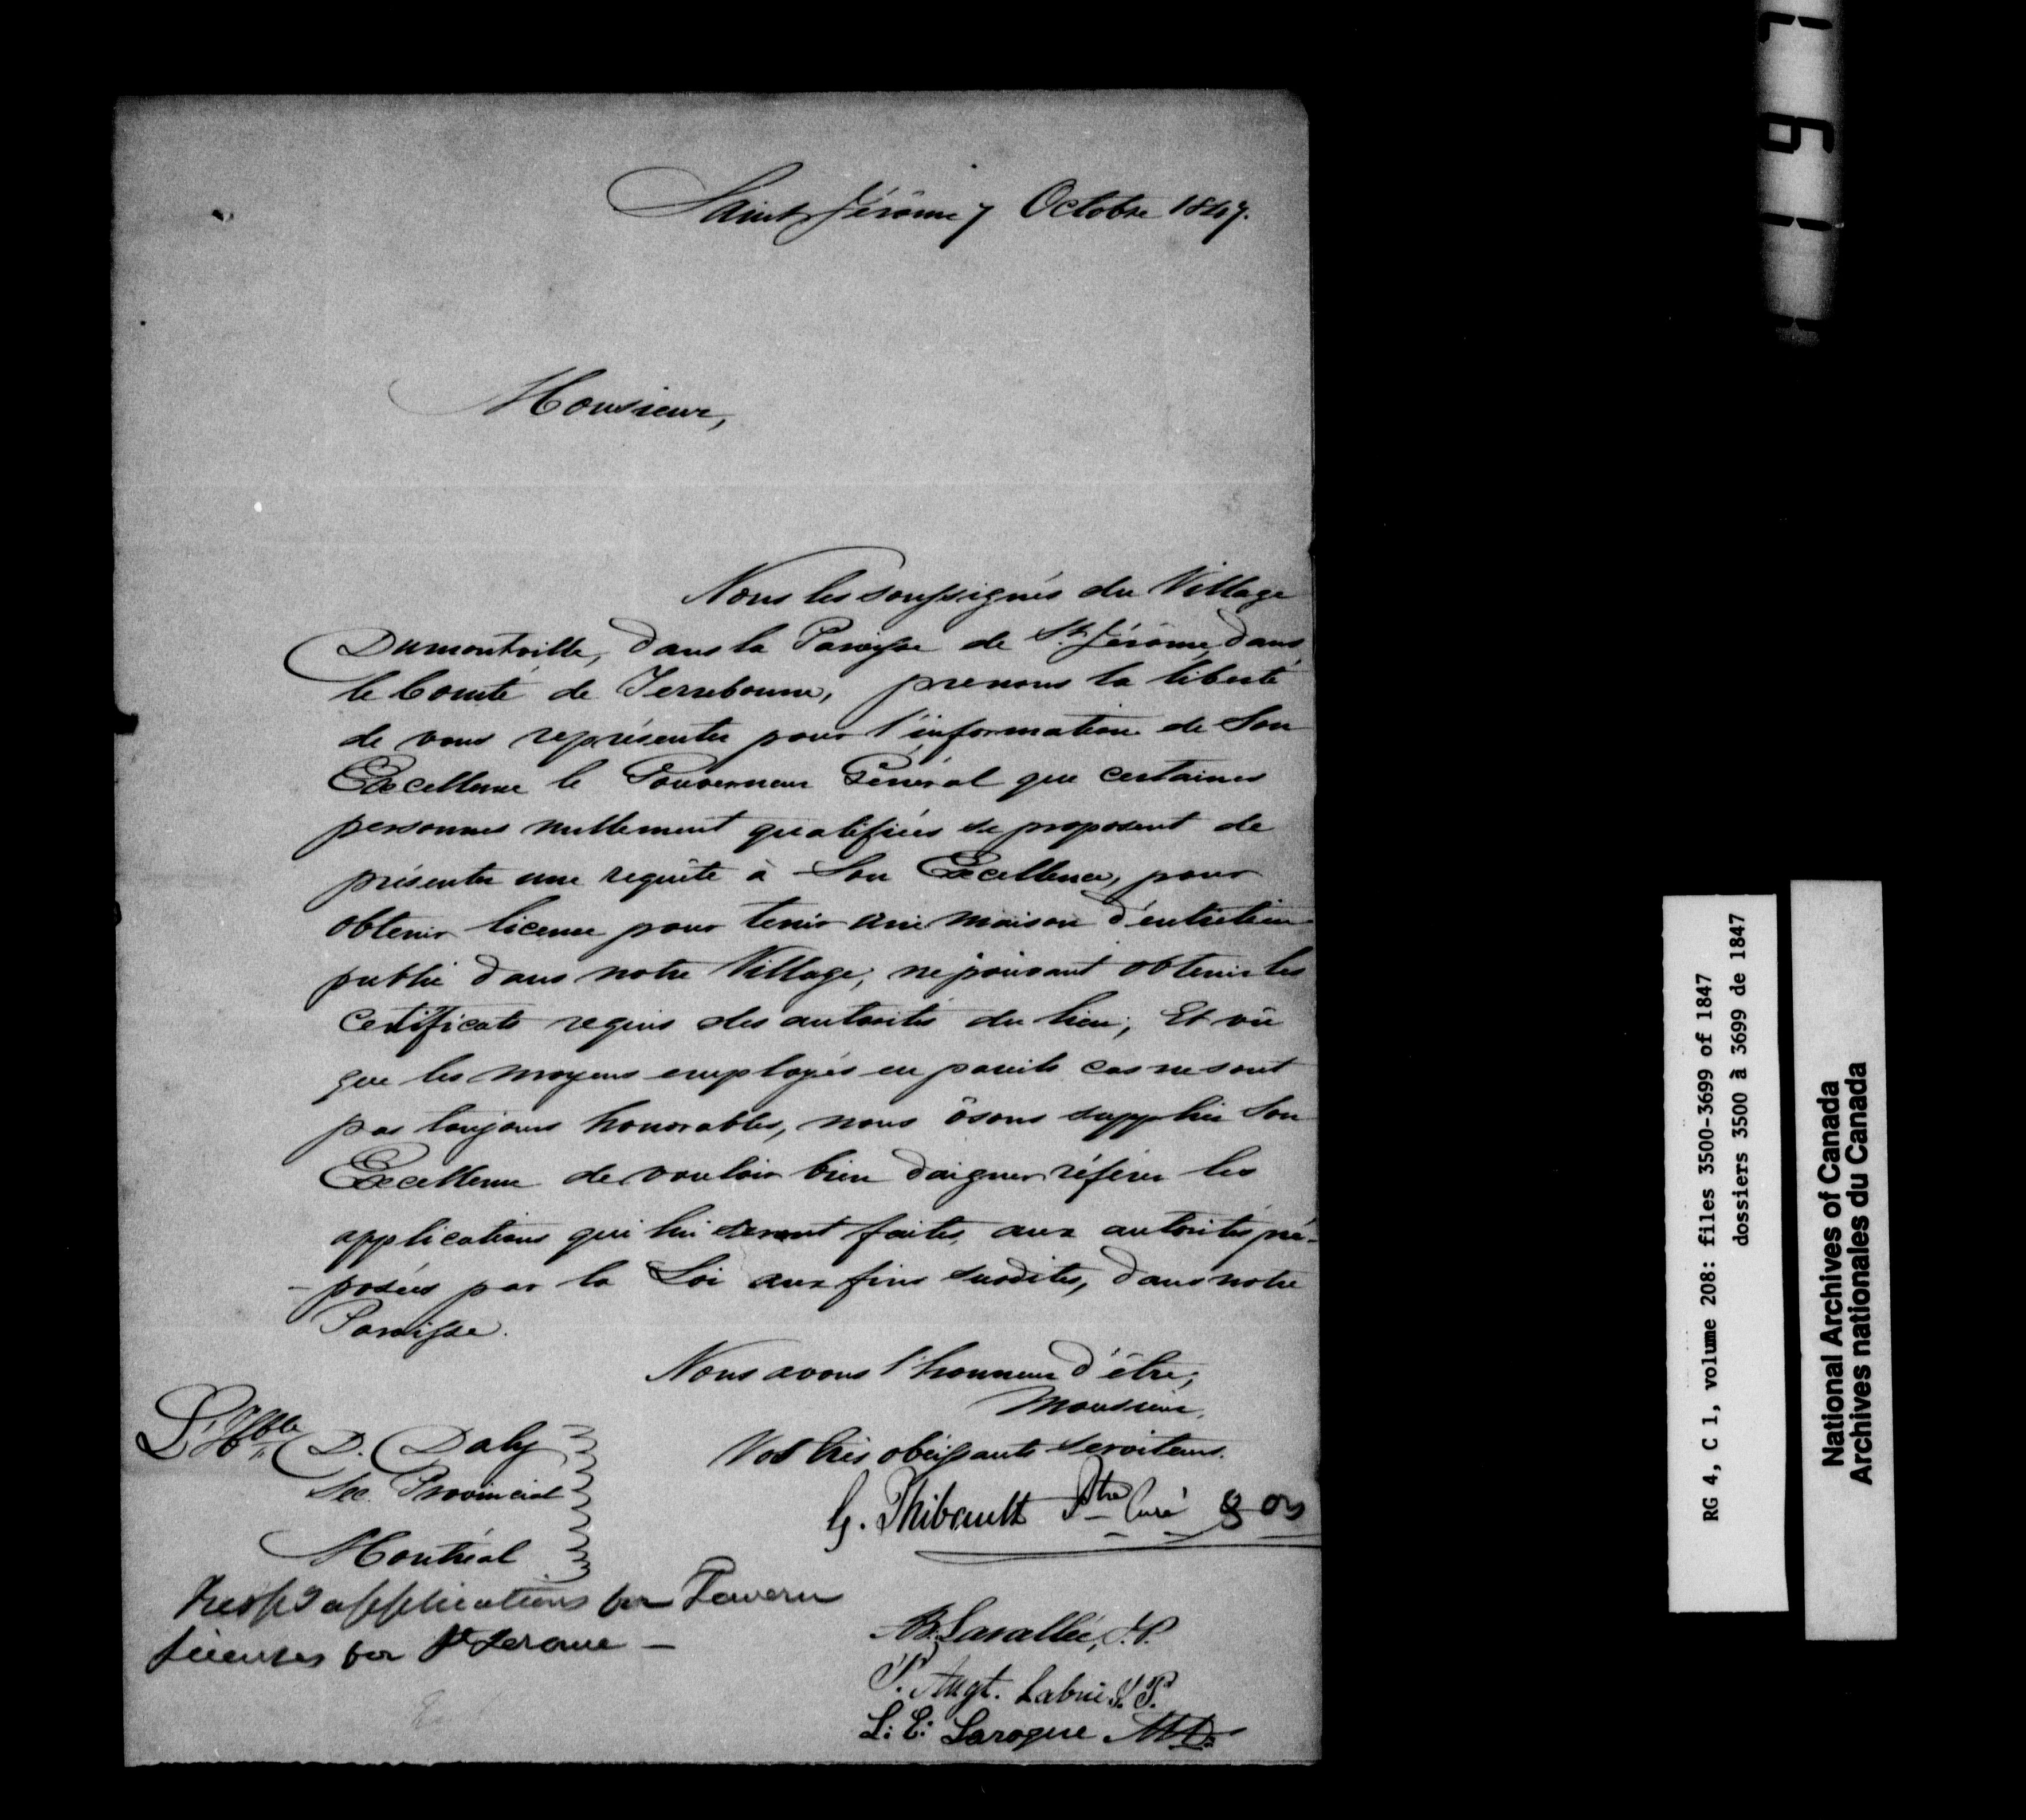 Saint Jérôme 7 Octobre 1847.
Monsieur,
Nous les soussignés du Village
Dumontville, dans la Paroisse de St. Jérôme, dans
le Comté de Terrebonne, prenons la liberté
de vous représenter pour l'information de Son
Excellence le Gouverneur Général que certaines
personnes nullement qualifiées se proposent de
présenter une requête à Son Excellence, pour
obtenir licence pour tenir une maison d'entretien
public dans notre Village, ne pouvant obtenir les
Certificats requis des autorités du lieu; Et vû
que les moyens employés en pareils cas ne sont
pas toujours honorables, nous ôsons supplier Son
Excellence de vouloir bien daigner référer les
applications qui lui seront faites, aux autorités pré-
-posées par la Loi aux fins susdites, dans notre
Paroisse.
Nous avons l'honneur d'être,
Monsieur,
Vos très obéissants serviteurs.
L'Hble D. Daly
Sec. Provincial
Montréal
G. Thibault Ptre Curé
B. Lavallée, J.P.
P. Augt. Labrie J.P.
L: E: Laroque MD.
applications for Tavern
licenses for St Jerome —
RG 4, C 1, volume 208: files 3500-3699 of 1847
dossiers 3500 à 3699 de 1847
National Archives of Canada
Archives nationales du Canada